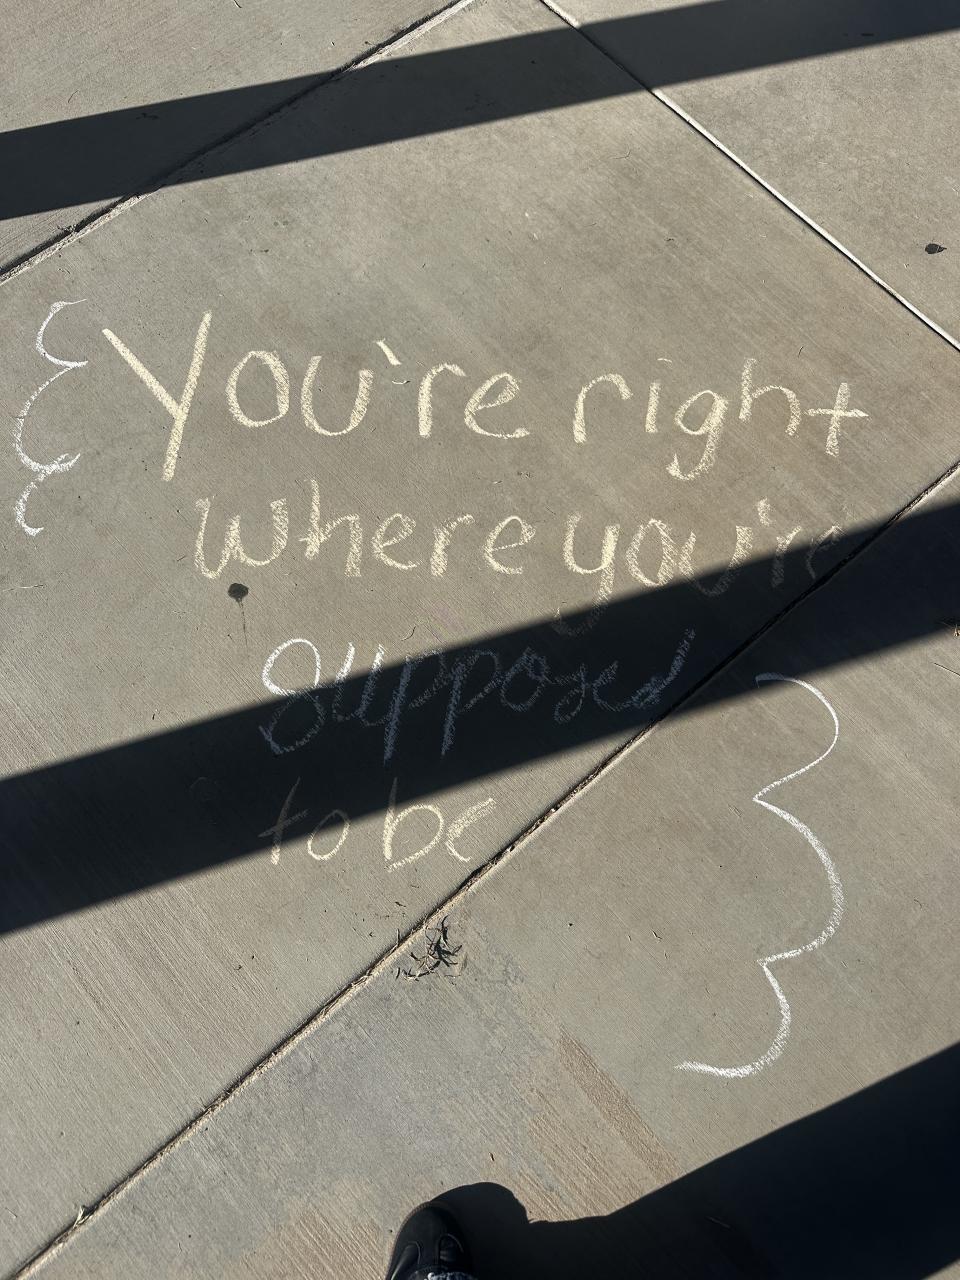 You're right
where you're
supposed
to be